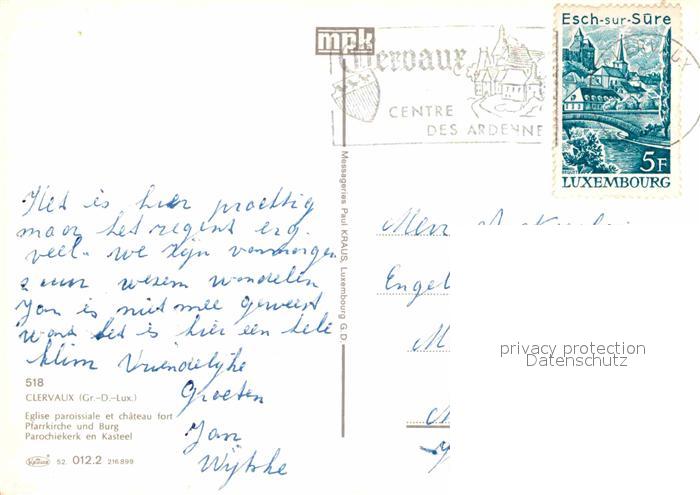 mpk
Clervaux
CENTRE
DES ARDENNE
Esch-sur-Sûre
5F
LUXEMBOURG
Messageries Paul KRAUS, Luxembourg G.D.
Het is hier prachtig
maar het regent erg
veel. we zijn vanmorgen
2 uur wezen wandelen
Jan is niet mee geweest
want het is hier een hele
klim Vriendelijke
Groeten
Jan
Wijtske
518
CLERVAUX (Gr.-D.-Lux.)
Eglise paroissiale et château fort
Pfarrkirche und Burg
Parochiekerk en Kasteel
Kraus 52. 012.2 216.899
Engel
privacy protection
Datenschutz